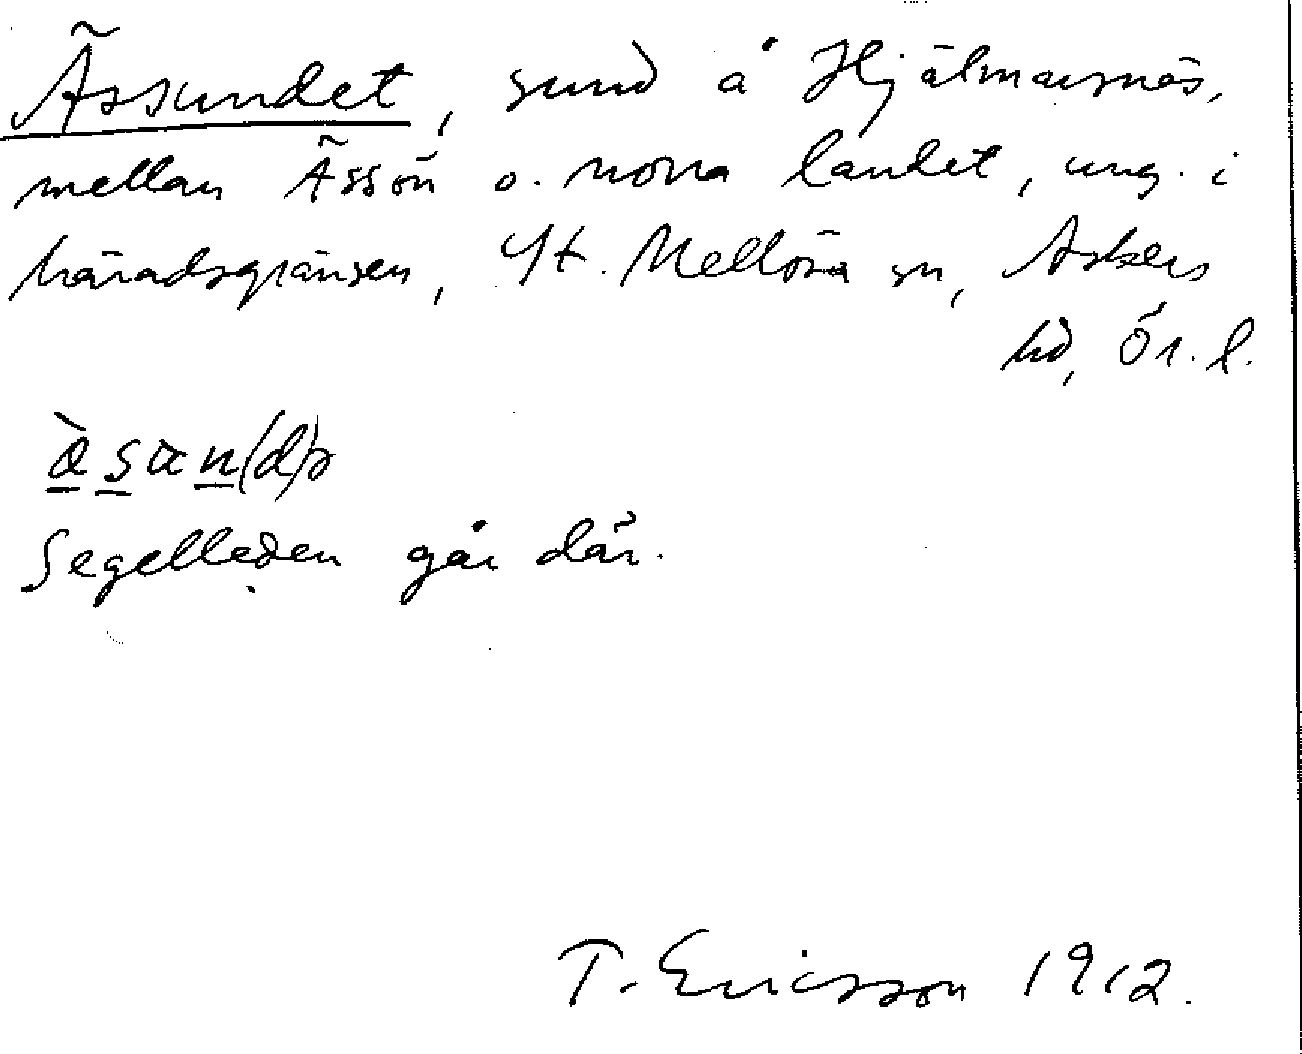 Ässundet, sund å Hjälmarsnäs,
mellan Ässön o. norra landet, ung. i
häradsgränsen, St. Mellösa sn, Askers
hd, Ör. l.
Segelleden går där.
T. Ericsson 1912.